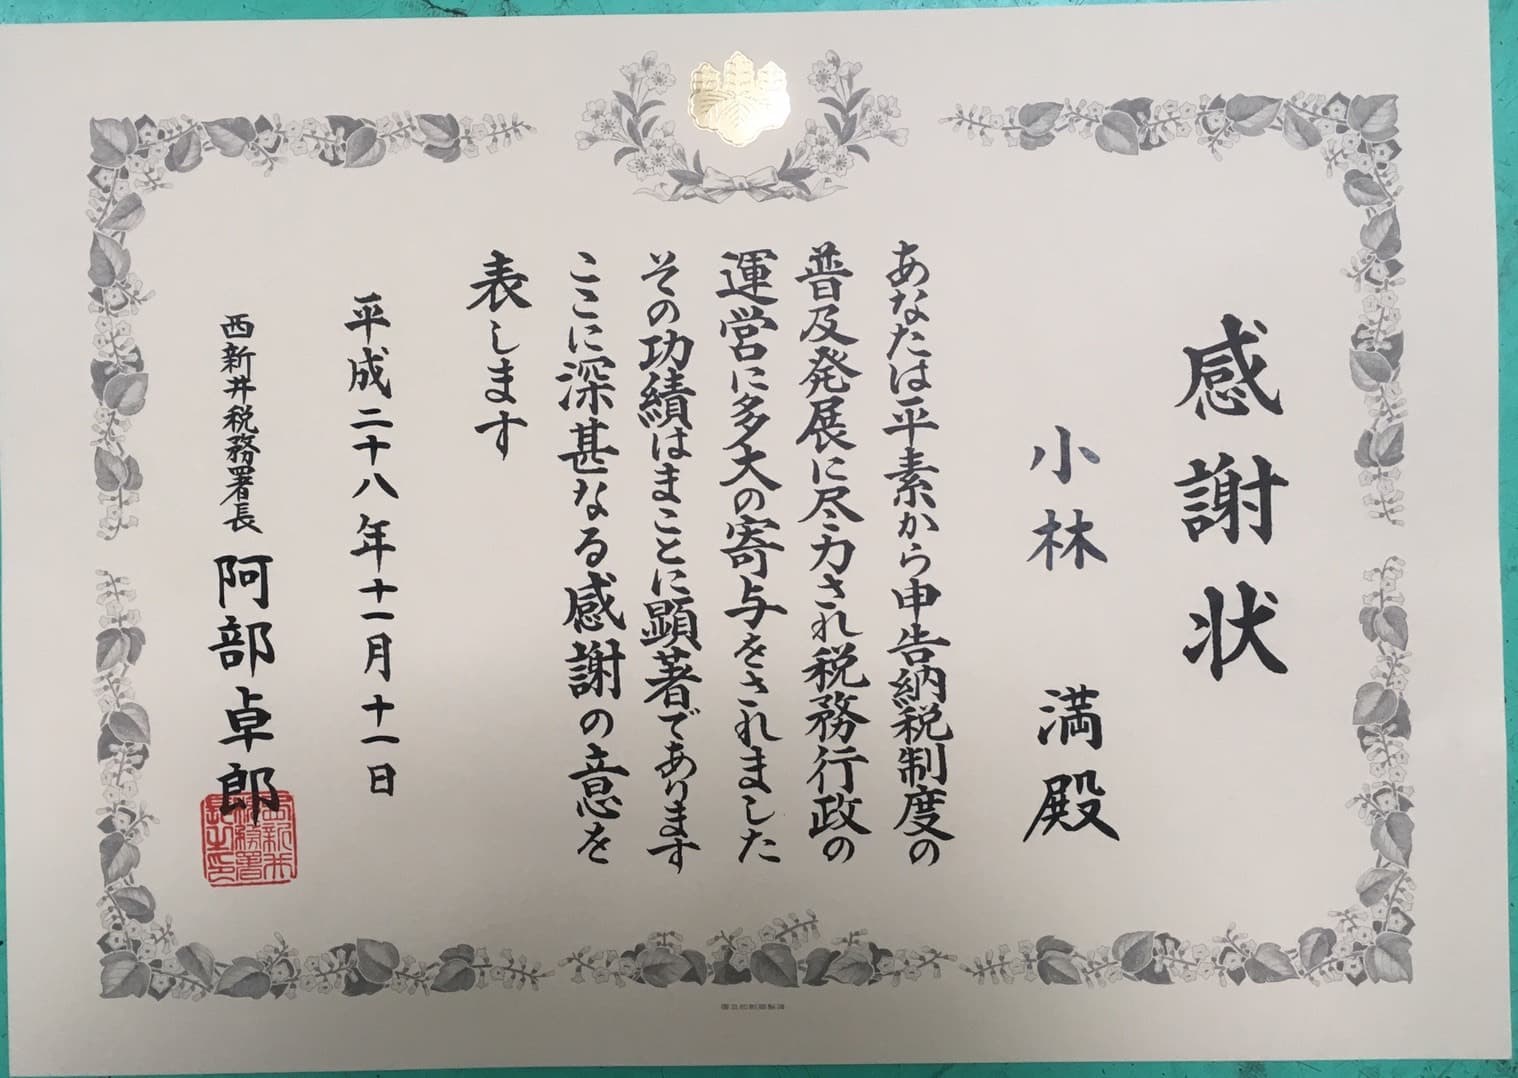 感謝状
小林　満殿
あなたは平素から申告納税制度の
普及発展に尽力され税務行政の
運営に多大の寄与をされました
その功績はまことに顕著であります
ここに深甚なる感謝の意を
表します
平成二十八年十一月十一日
西新井税務署長　阿部卓郎
西新井税務署長之印